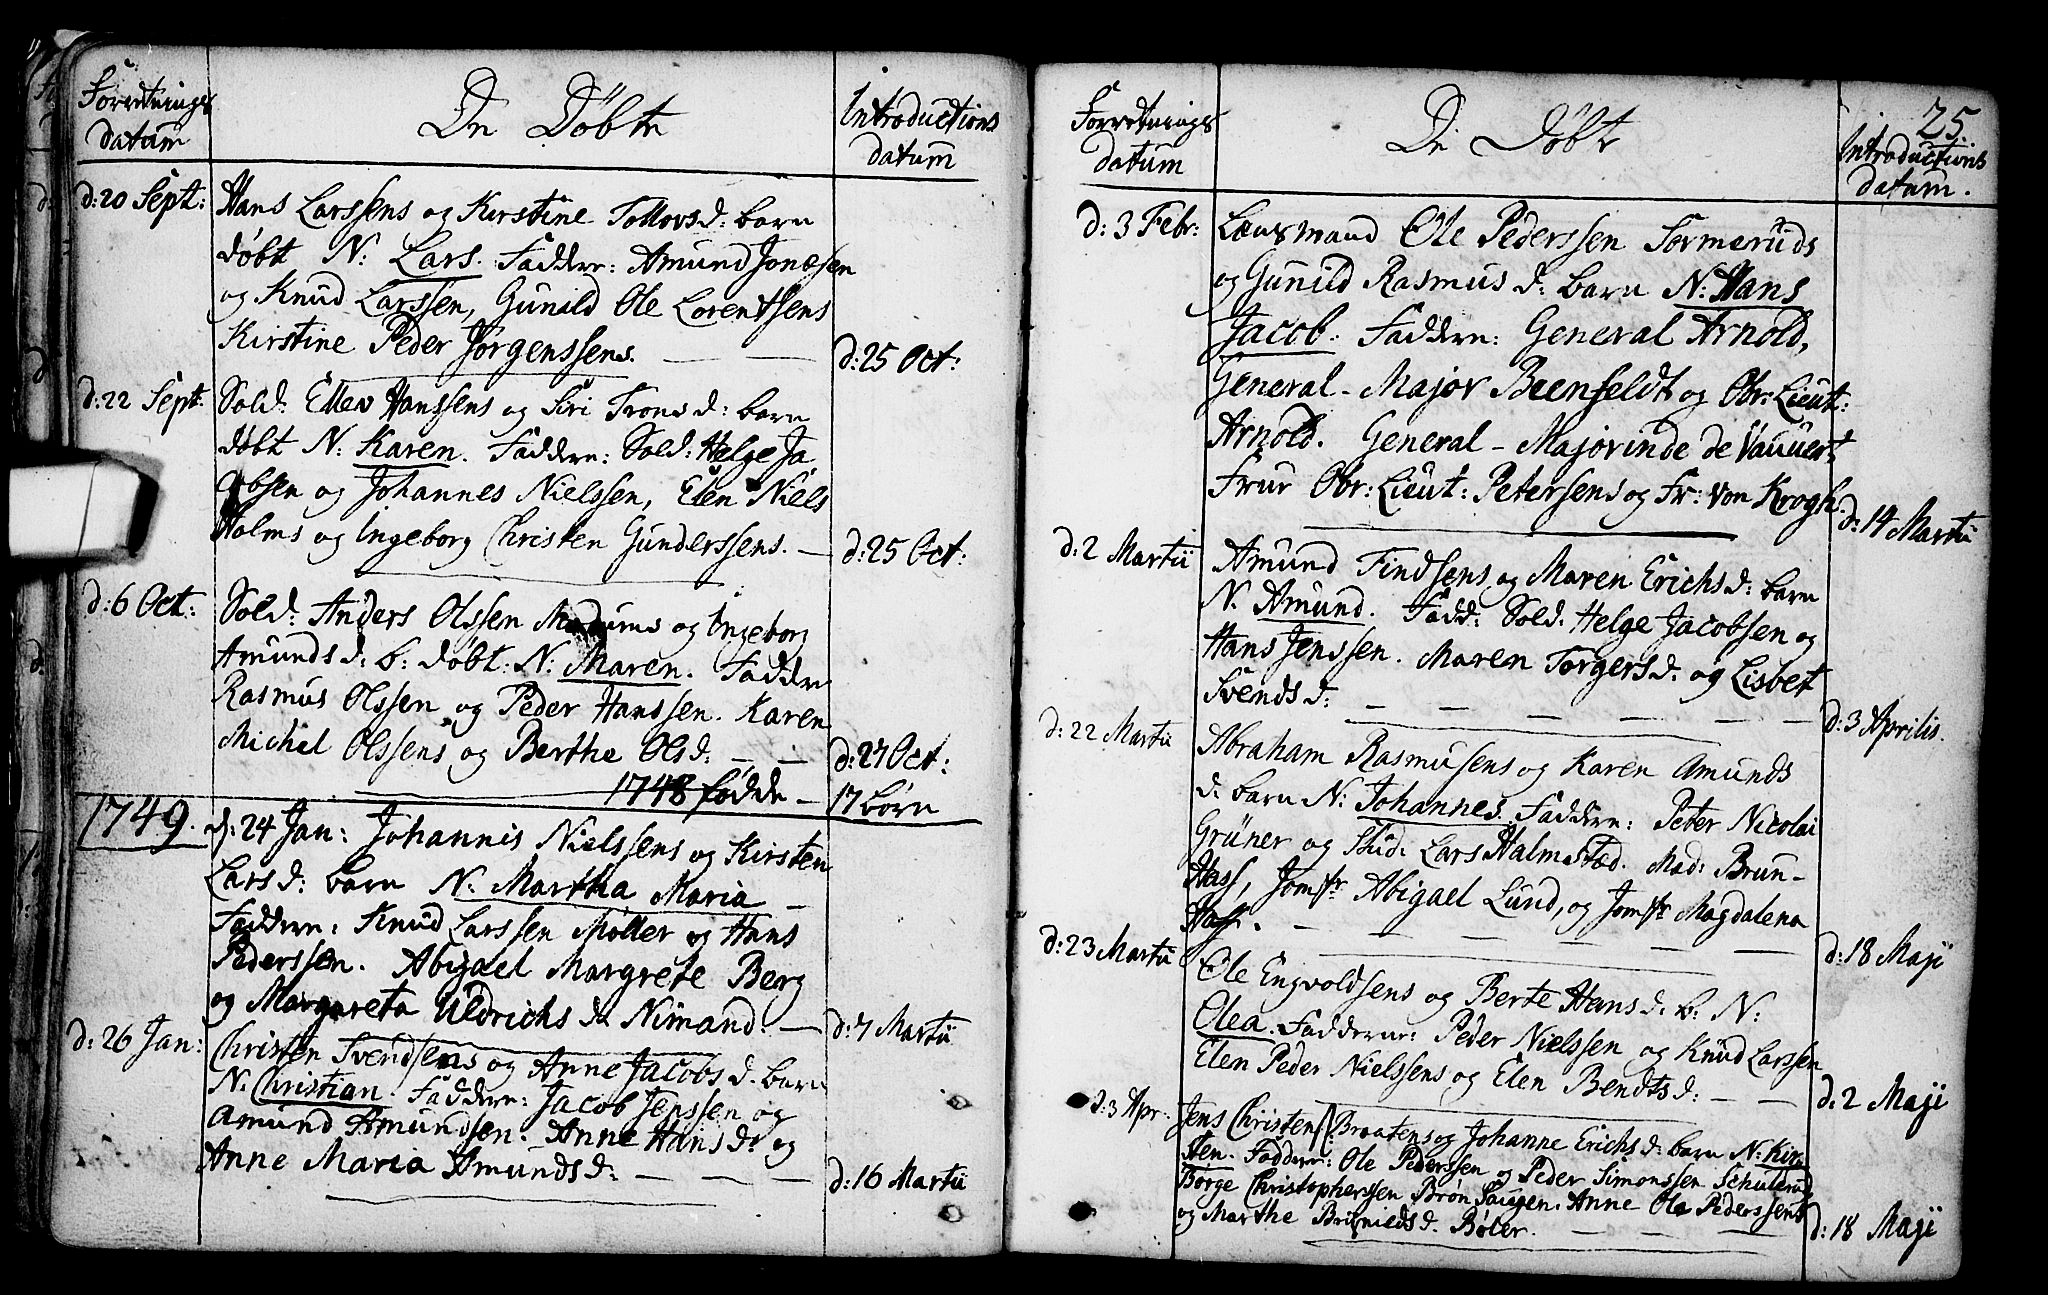 Forretnings
datum
De Døbte
Introductions
datum
d: 20 Sept:
Hans Larssens og Kirstine Tollovsd: barn
døbt N: Lars. Faddere: Amund Jonæsen
og Knud Larssen, Gunild Ole Lorentsens
Kirstine Peder Jørgenssens.
d: 25 Oct:
d: 22 Sept:
Sold: Ellev Hanssens og Siri Tronsd: barn
døbt N: Karen. Faddere: Sold: Helge Ja
cobsen og Johannes Nielssen, Elen Niels
Holms og Ingeborg Christen Gunderssens. —
d: 25 Oct:
d: 6 Oct:
Sold: Anders Olssen Modums og Ingeborg
Amundsd: b: døbt. N: Maren. Faddre
Rasmus Olssen og Peder Hanssen. Karen
Michel Olssens og Berthe Olsd: — —
d: 27 Oct:
1748 fødde —
17 børn
1749.
d: 24 Jan: Johannis Nielssens og Kirsten
Larsd: barn N: Martha Maria —
Faddere: Knud Larssen Møller og Hans
Pederssen. Abigael Margrete Berg
og Margareta Uldrichs d: Nimand. —
d: 7 Martii
d: 26 Jan:
Christen Svendsens og Anne Jacobs d. barn
N: Christian. Faddere: Jacob Jenssen og
Amund Amundsen. Anne Hans d: og
Anne Maria Amundsd: — — —
d: 16 Martii
25.
Forretnings
datum
De Døbte
Introductions
datum.
d: 3 Febr:
Lænsmand Ole Pederssen Sørmeruds
og Gunild Rasmus d: barn N: Hans
Jacob. Faddere: General Arnold,
General-Major Beenfeldt og Obr: Lieut:
Arnold. General-Majorinde de Vauuert
Frur Obr: Lieut: Petersens og Fr: von Krogh.
d: 14 Martii
d: 2 Martii
Amund Findsens og Maren Erichsd: barn
N. Amund. Fadd: Sold. Helge Jacobsen og
Hans Jenssen. Maren Torgersd. og Lisbet
Svendsd: — — — — — —
d: 3 Aprilis.
d: 22 Martii
Abraham Rasmusens og Karen Amunds
d: barn N: Johannes. Faddere: Peter Nicolai
Grüner og Stud: Lars Halmestæd. Mad: Brun-
Hass, Jomfr Abigael Lund, og Jomfr Magdalena
Hass. — — — — — —
d: 18 Maji
d: 23 Martii
Ole Engvoldsens og Berte Hansd: b: N:
Olea. Fadderne: Peder Nielssen og Knud Larssen
Elen Peder Nielssens og Elen Bendtsd: — —
d: 2 Maji
d: 3 Apr.
Jens Christens Braatens og Johanne Erichsd: barn N: Kir-
sten. Faddere: Ole Pederssen og Peder Simonssen Schulerud,
Børge Christopherssen Brøn Haugen. Anne Ole Pederssens
og Marthe Brynildsd. Bøler. — — — —
d: 18 Maji